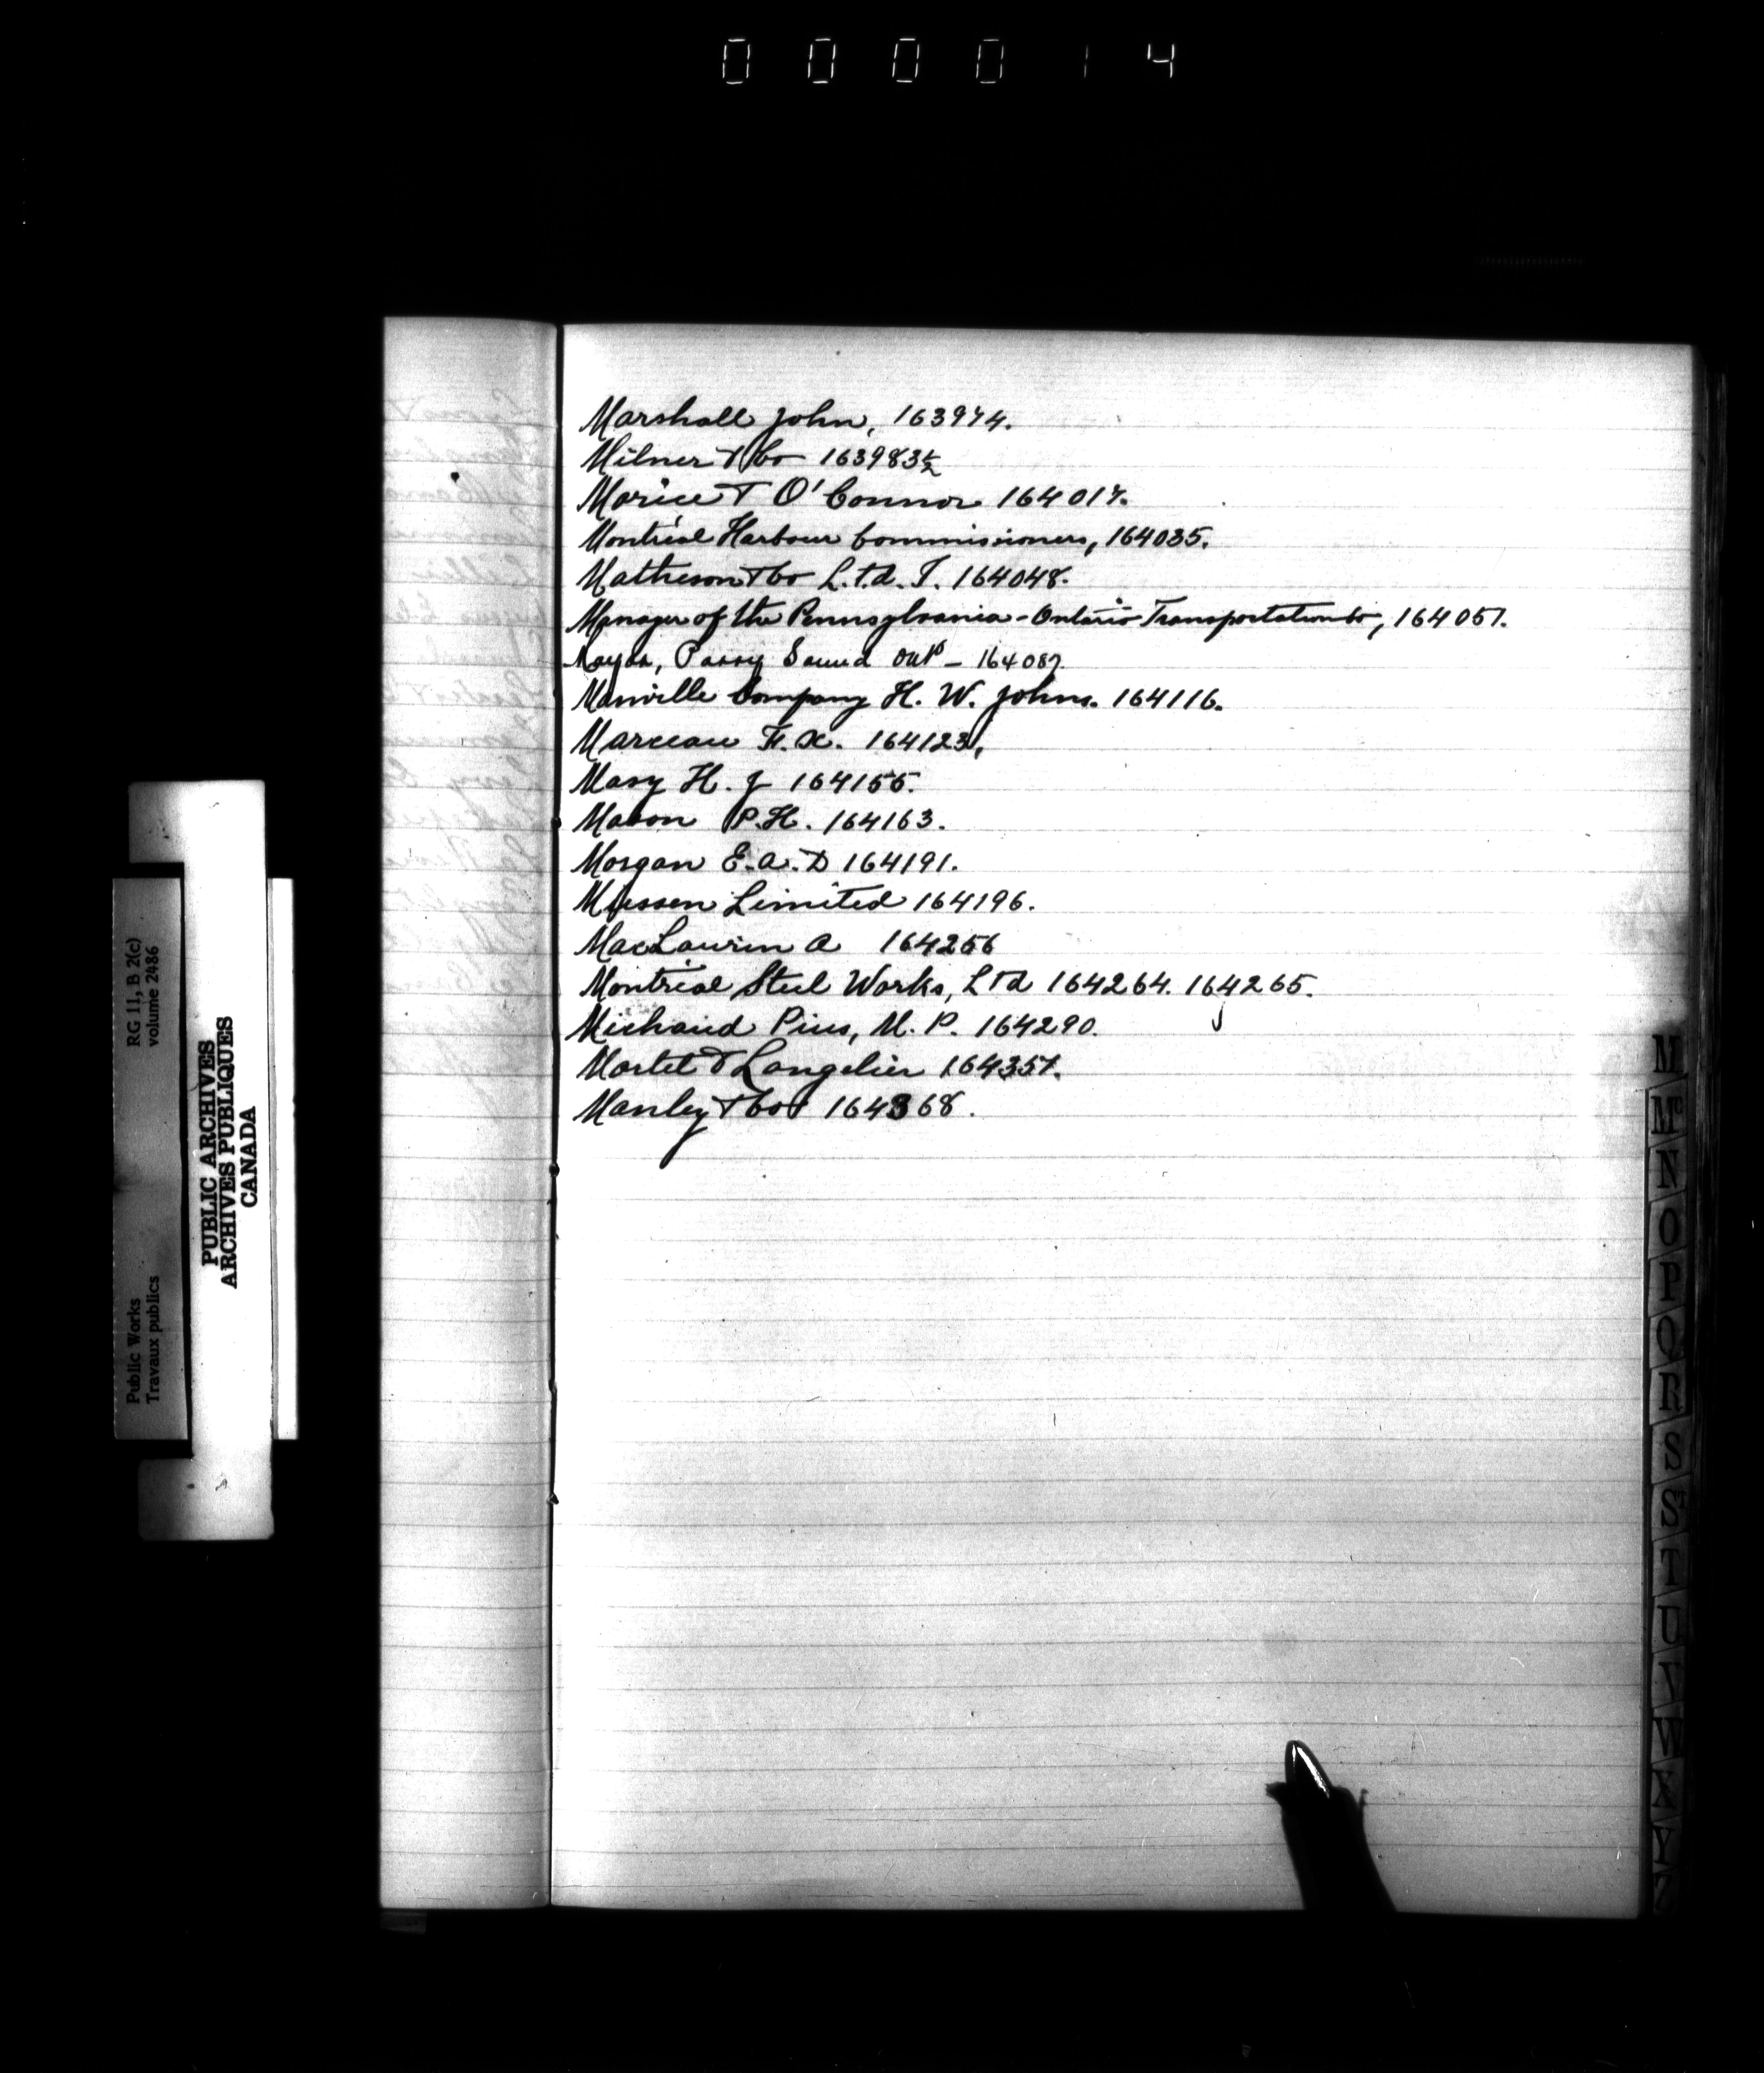 000014
Marshall John, 163974.
Milner & Co 163983½
Morice T O'Connor 164017.
Montreal Harbour Commissioners, 164035.
Matheson & Co L.t.d. I. 164048.
Manager of the Pennsylvania-Ontario Transportation Co, 164057.
Mayor, Parry Sound Ont - 164087
Manville Company H. W. Johns. 164116.
Marceau F. X. 164123,
Mary H. J 164155.
Mason P.H. 164163.
Morgan E. A. D 164191.
Mussen Limited 164196.
MacLaurin A 164256
Montreal Steel Works, Ltd 164264. 164265.
Michaud Pius, M. P. 164290.
Martel & Langelier 164357.
Manley & Co 164368.
M
Mc
N
O
P
Q
R
S
T
U
V
W
X
Y
RG 11, B 2(c)
volume 2486
Public Works
Travaux publics
PUBLIC ARCHIVES
ARCHIVES PUBLIQUES
CANADA